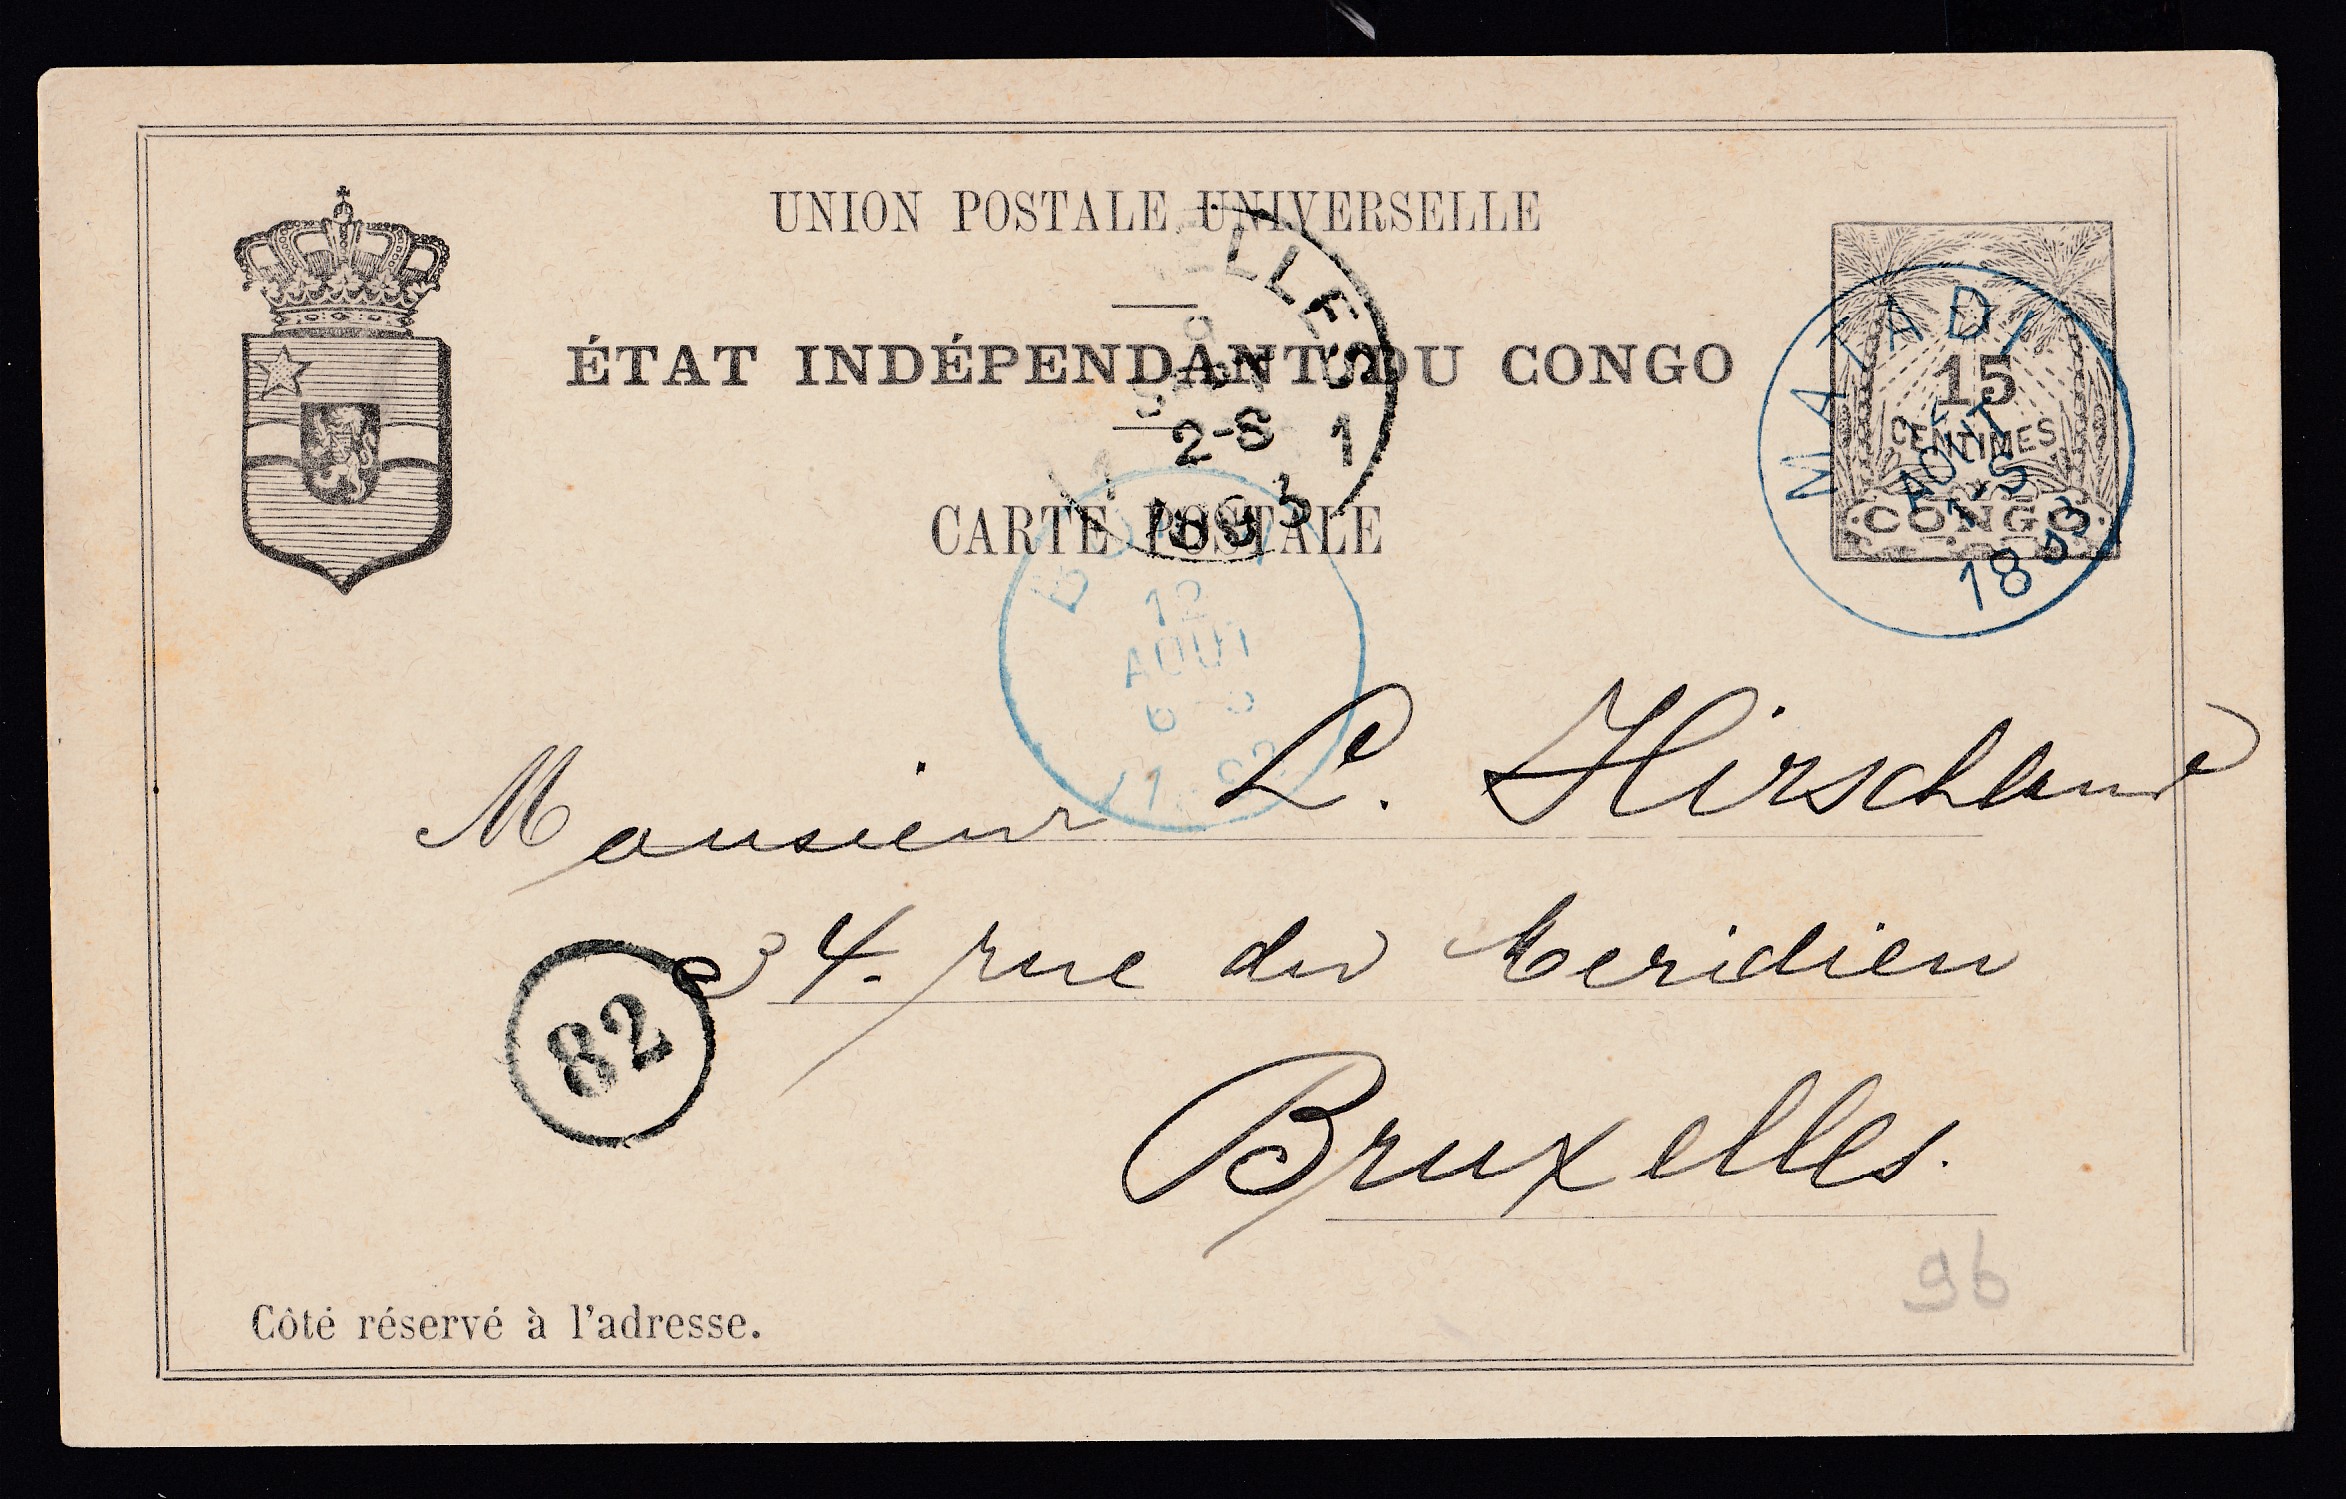 UNION POSTALE UNIVERSELLE
ÉTAT INDÉPENDANT DU CONGO
CARTE POSTALE
15
CENTIMES
CONGO
MATADI
AOUT
1-S
1893
ELLES
2-8
1
1893
12
AOUT
Monsieur L. Hirschland
34. rue du Meridien
Bruxelles.
82
96
Côté réservé à l'adresse.